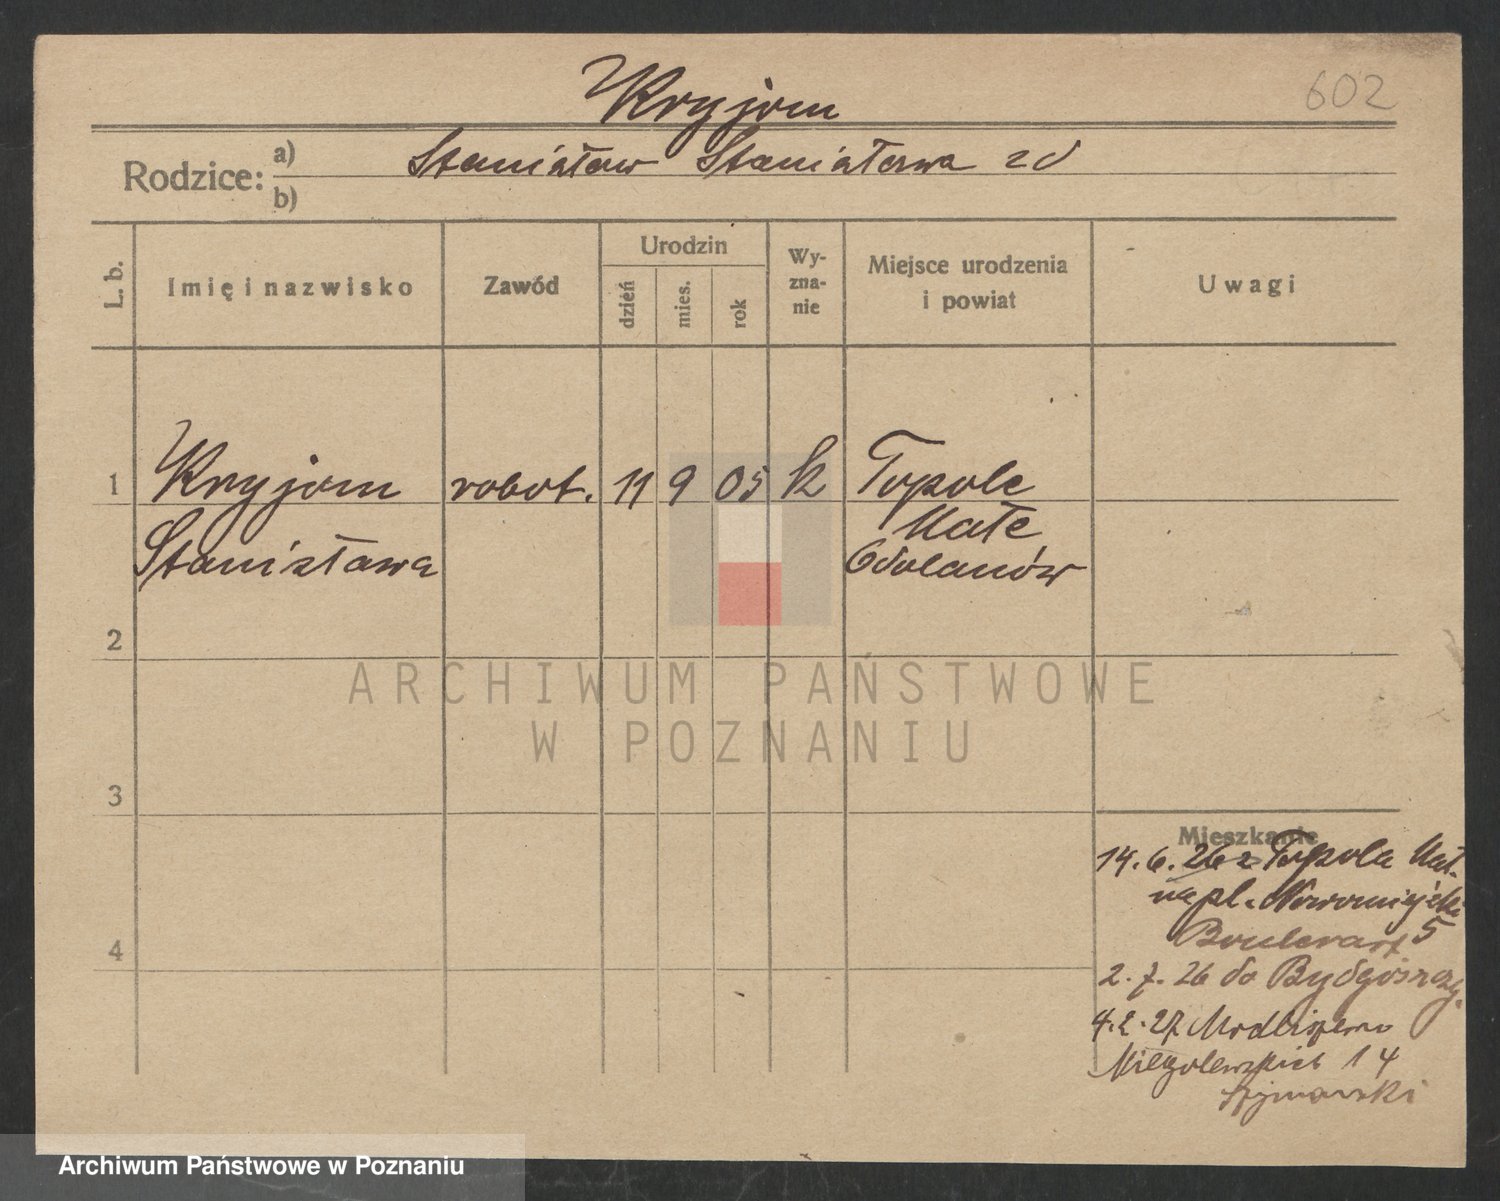 602
Kryjom
Rodzice: a) b)
Stanisław Stanisława zd
L. b.
Imię i nazwisko
Zawód
Urodzin
dzień
mies.
rok
Wy-
zna-
nie
Miejsce urodzenia
i powiat
Uwagi
1 Kryjom robot. 11 9 05 k Topole
Stanisława
Małe
Odolanów
2
3
4
ARCHIWUM PAŃSTWOWE
W POZNANIU
Mieszkanie
14. 6. 26 z Topola Mał.
na pl. Nowomiejski
5
2. 7. 26 do Bydgoszczy.
4. 2. 27
Niegolewskich 14
Szymański
Archiwum Państwowe w Poznaniu